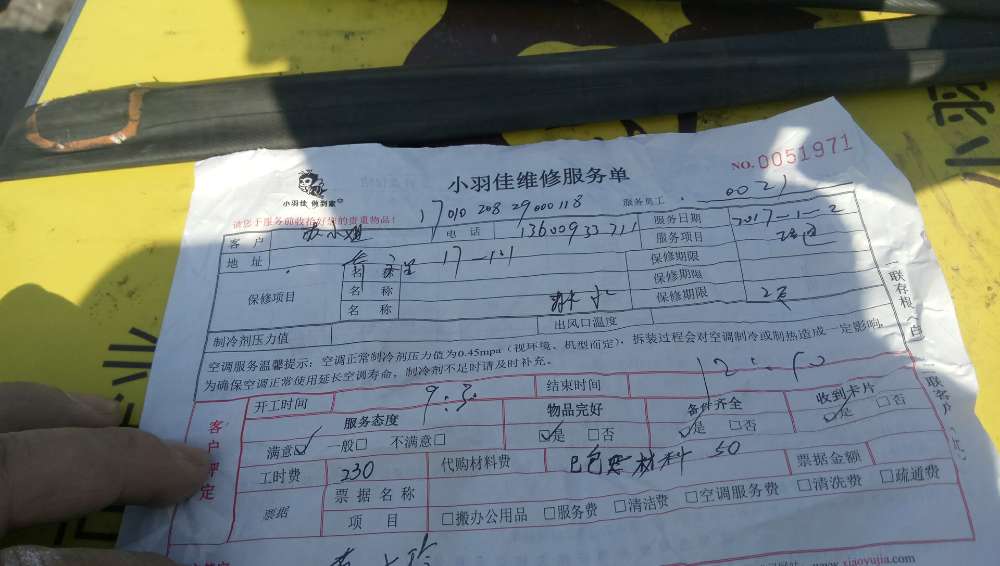 NO.0051971
小羽佳维修服务单
小羽佳 做到家
请您于服务前收拾好您的贵重物品!
17010 208 29000118
服务员工 0021
客户 小姐 电话 服务日期 2017-1-2
地址 17-1 服务项目
保修项目 名称 保修期限
名称 保修期限
名称 水 保修期限 2
制冷剂压力值 出风口温度
空调服务温馨提示:空调正常制冷剂压力值为0.45mpa(视环境、机型而定),拆装过程会对空调制冷或制热造成一定影响,
为确保空调正常使用延长空调寿命,制冷剂不足时请及时补充。
一联存根(白)
二联客户
客户评定
开工时间 9:3 结束时间 12:
服务态度 物品完好 条件齐全 收到卡片
满意☑ 一般□ 不满意□ ☑是 □否 ☑是 □否 ☑是 □否
工时费 230 代购材料费 已包 材料 50 票据金额
票据 票据名称
项目 □搬办公用品 □服务费 □清洁费 □空调服务费 □清洗费 □疏通费
www.xiaoyujia.com